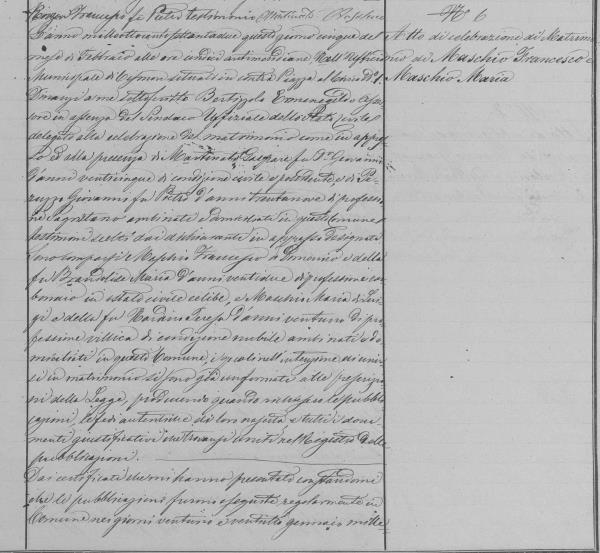 Francesco fu Pietro testimonio Martinato
L'anno milleottocento settantadue questo giorno cinque del
mese di Febbraio alle ore undici antimeridiane Nell'Ufficio
Municipale di Cismon situato in contrà Piazza al Civico N° 1.
Dinanzi a me sottoscritto Bertizzolo Ermenegildo Asses
sore in assenza del Sindaco Ufficiale dello Stato Civile
delegato alla celebrazione del matrimonio come in appres
so e alla presenza di Martinato Gaspare fu Gr. Giovanni
d'anni venticinque di condizione civile e possidente, e di
Giovanni fu Pietro d'anni trentanove di professio
ne Sagrestano ambi nati e domiciliati in questo Comune
testimoni scelti dai dichiaranti in appresso designati
sono comparsi Maschio Francesco di Domenico e della
fu Brandalise Maria d'anni ventidue di professione car
bonaio in istato civile celibe, e Maschio Maria di Lui
gi e della fu Teresa d'anni ventuno di pro
fessione villica di condizione nubile ambi nati e do
miciliati in questo Comune, i quali nell'intenzione di unir
si in matrimonio si sono già uniformati alle prescrizio
ni della Legge, producendo quando richiesero le pubbli
cazioni, le fedi autentiche di loro nascita e tutti i docu
menti giustificativi che trovansi uniti nel Registro delle
pubblicazioni.
Dai certificati che mi hanno presentato constandomi
che le pubblicazioni furono eseguite regolarmente in
Comune nei giorni ventuno e ventotto gennaio mille
N° 6
Atto di celebrazione di Matrimo
nio di Maschio Francesco e
Maschio Maria